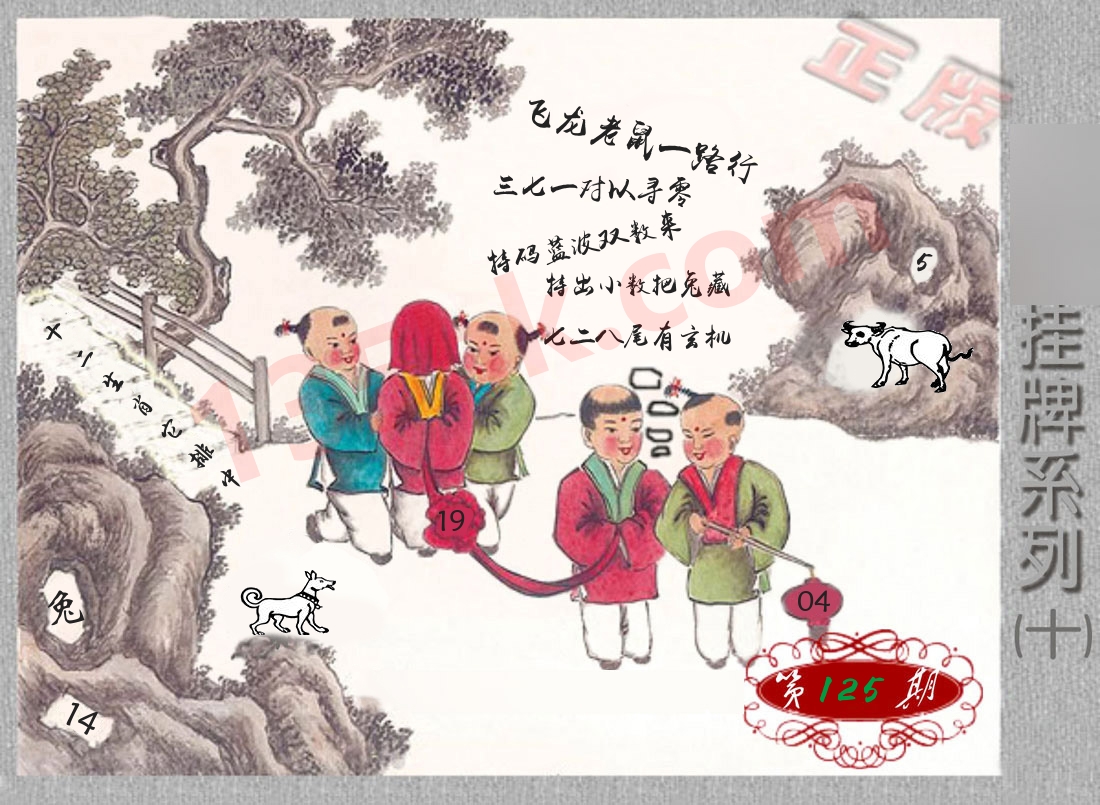 正版
飞龙老鼠一路行
三七一对以寻零
特码蓝波双数来
持出小数把兔藏
七二八尾有玄机
5
十二生肖它排中
19
04
兔
14
第125期
挂牌系列(十)